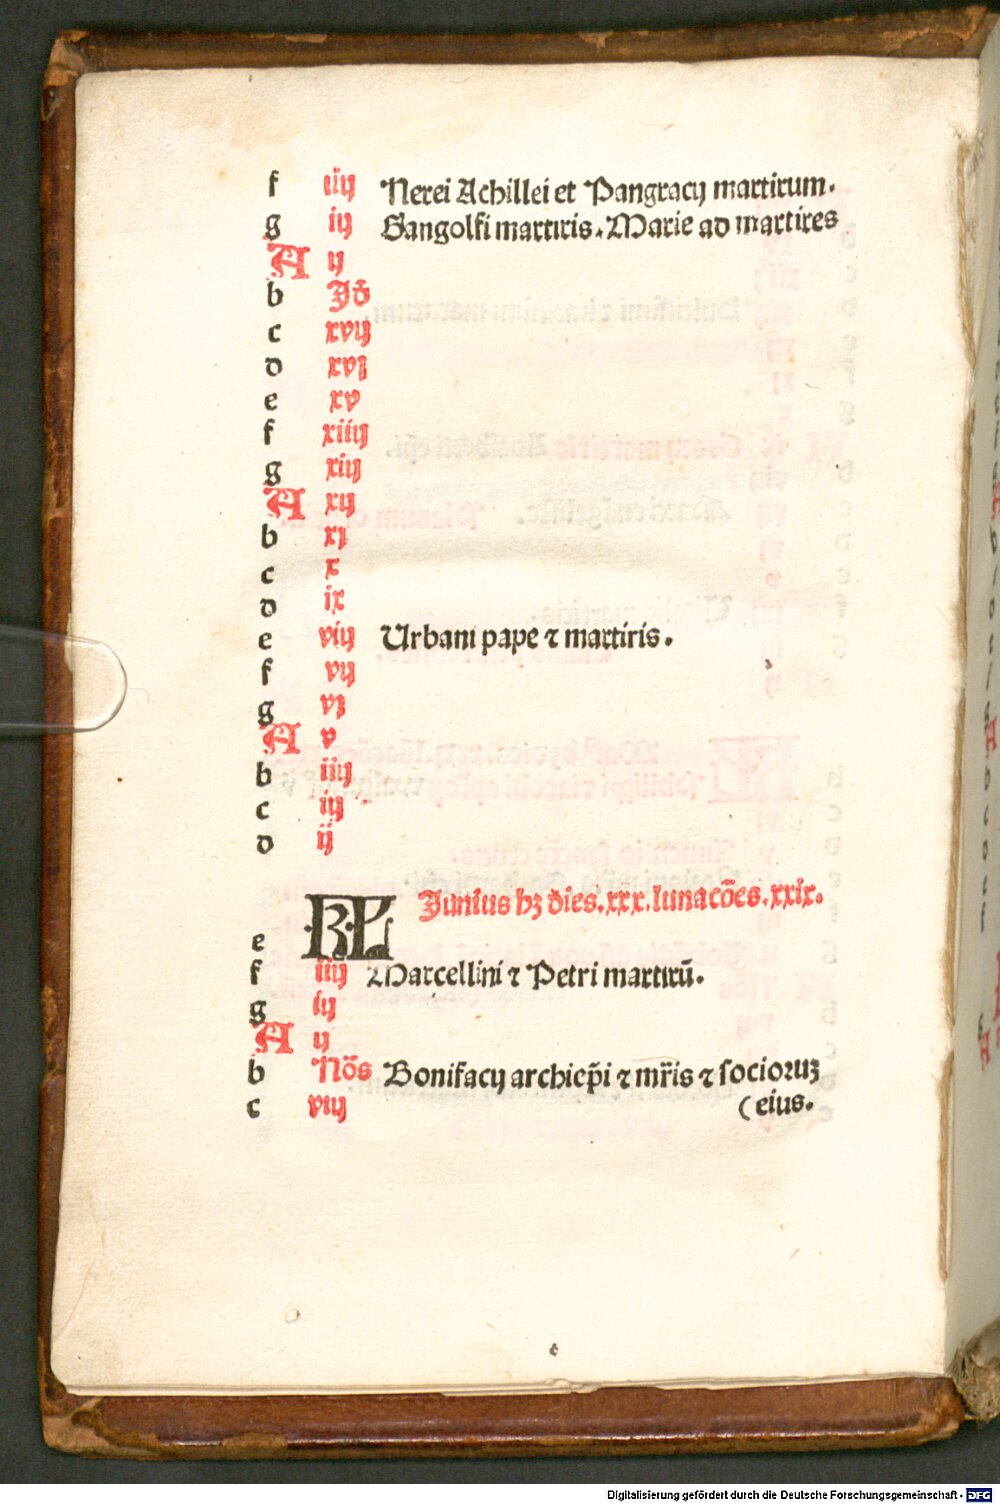 f iiij Nerei Achillei et Pangracij martirum.
g iij Gangolfi martiris. Marie ad martires
A ij
b Jd̄
c xvij
d xvj
e xv
f xiiij
g xiij
A xij
b xj
c x
d ix
e viij Urbani pape ⁊ martiris.
f vij
g vj
A v
b iiij
c iij
d ij
Junius hꝫ dies. xxx. lunacōes. xxix.
e KL
f iiij Marcellini ⁊ Petri martirū.
g iij
A ij
b Nōs Bonifacij archiep̄i ⁊ mr̄is ⁊ socioruꝫ
c viij (eius.
Digitalisierung gefördert durch die Deutsche Forschungsgemeinschaft - DFG